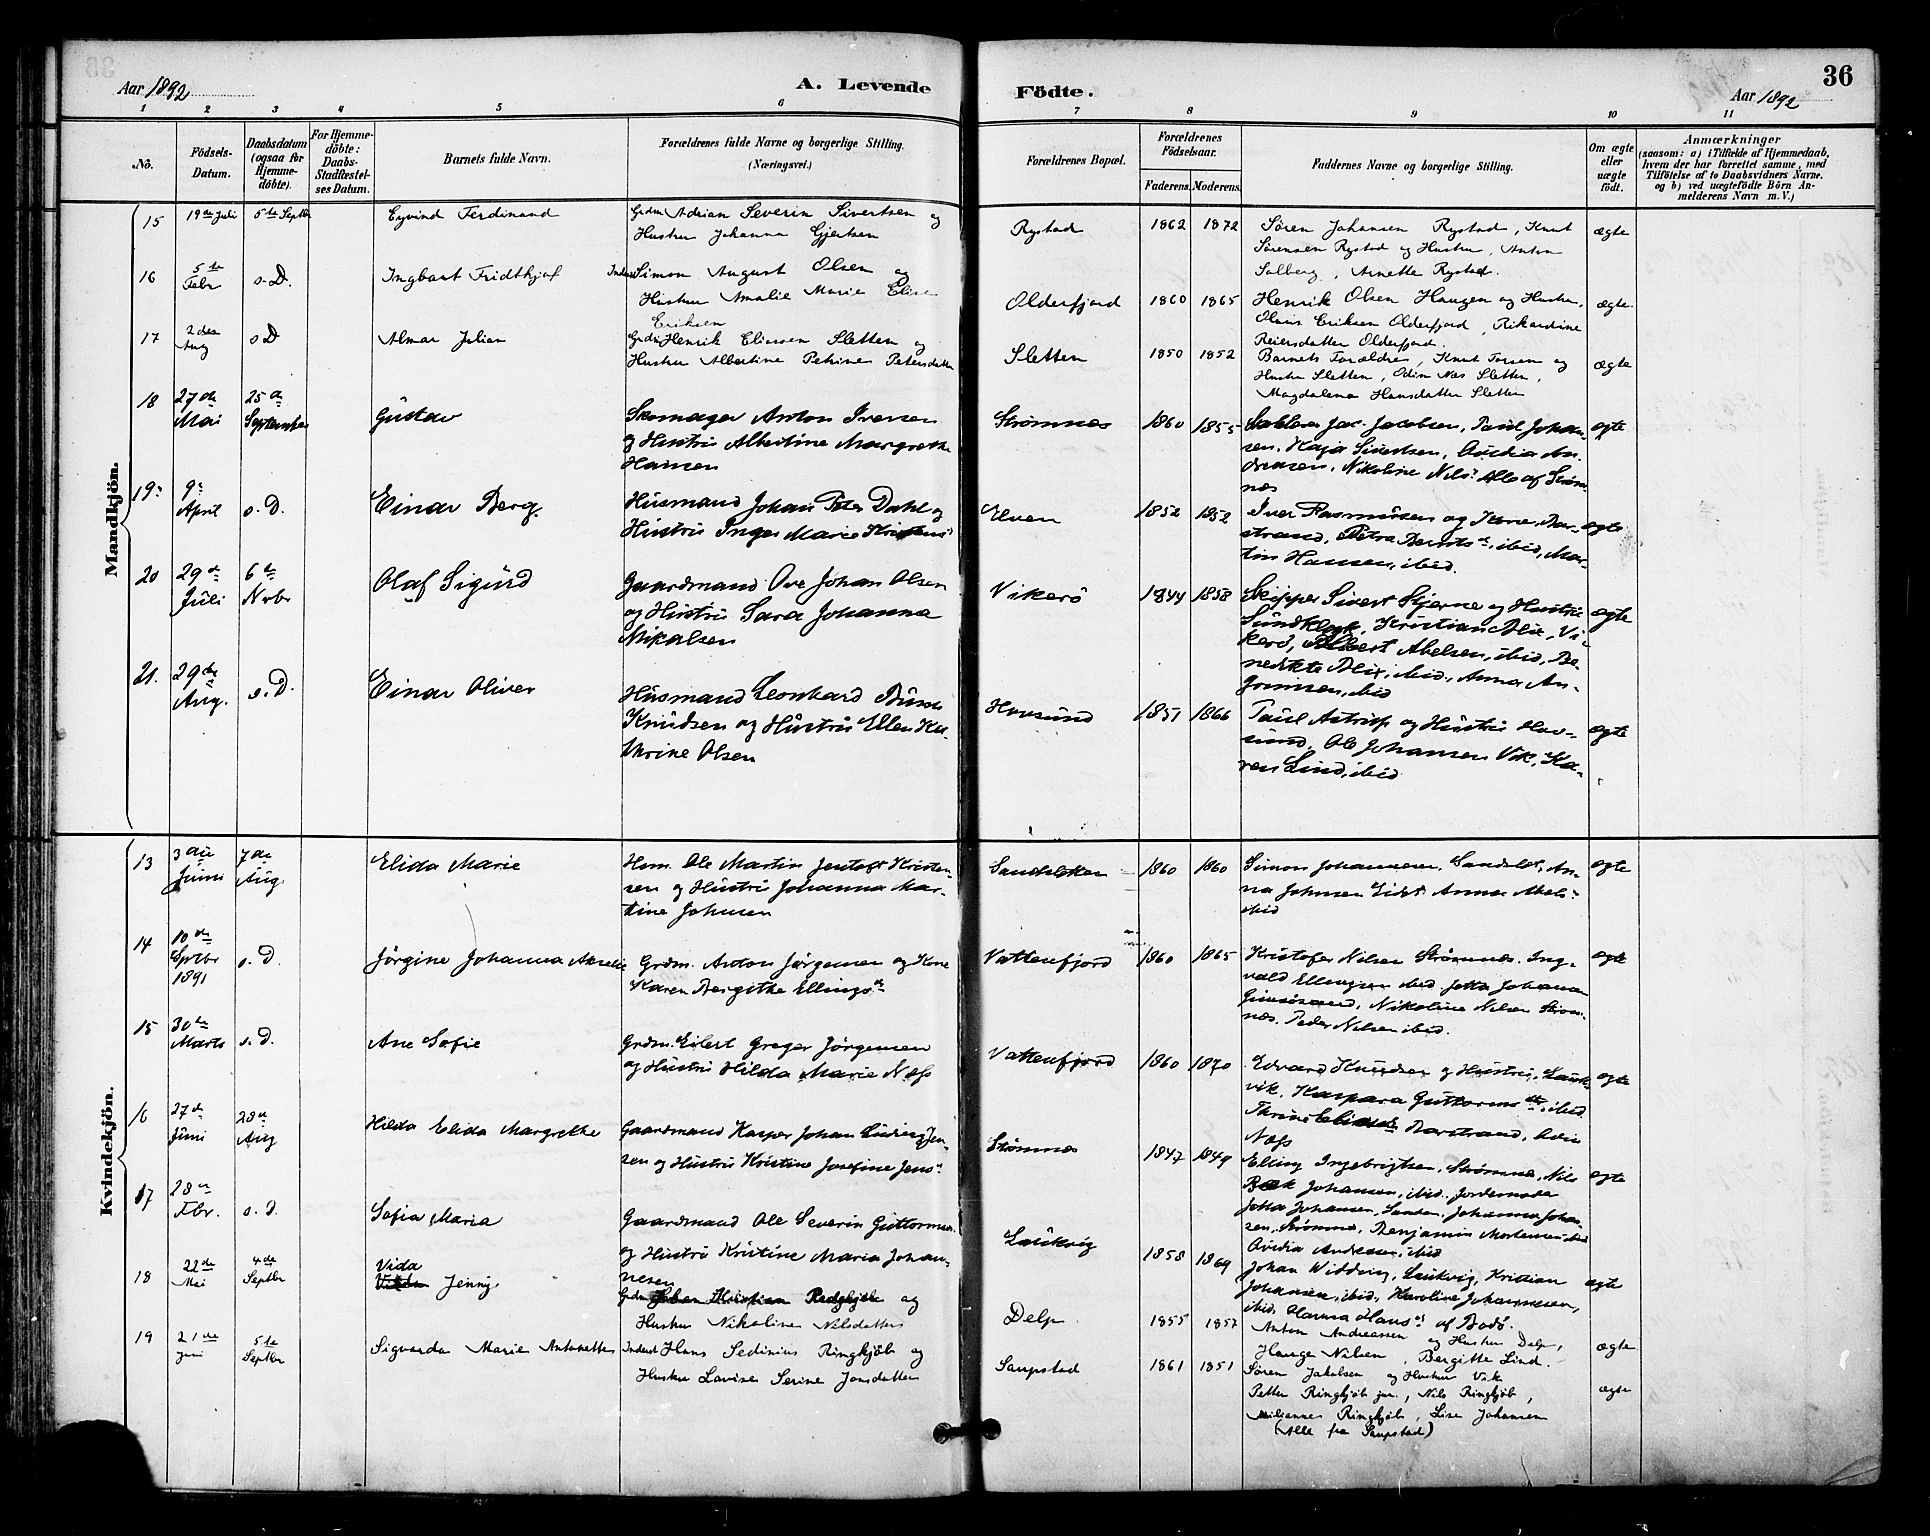 Aar 1892
A. Levende
Födte.
Aar 1892
36
1 2 3 4 5 6 7 8 9 10 11
No.
Födsels-
Datum.
Daabsdatum
(ogsaa for
Hjemme-
döbte).
For Hjemme-
döbte:
Daabs-
Stadfæstel-
ses Datum.
Barnets fulde Navn.
Forældrenes fulde Navne og borgerlige Stilling.
(Næringsvei.)
Forældrenes Bopæl.
Forældrenes
Födselsaar.
Faderens. Moderens.
Faddernes Navne og borgerlige Stilling.
Om ægte
eller
uægte
födt.
Anmærkninger
(saasom: a) i Tilfælde af Hjemmedaab,
hvem der har forrettet samme, med
Tilföielse af to Daabsvidners Navne.
og b) ved uægtefödte Börn An-
melderens Navn m. V.)
Mandkjön.
15 19de Juli 5te Septbr Eyvind Ferdinand Grdm Adrian Severin Sivertsen og
Hustru Johanna Gjertsen
Rystad 1862 1872 Sören Johansen Rystad, Knut
Sörensen Rystad og Hustru, Anton
Solberg, Arnette Rystad.
ægte
16 5te Febr s.D. Ingbart Fridtkjof Inderst Simon August Olsen og
Hustru Amalie Marie Elise
Eriksen
Olderfjord 1860 1865 Henrik Olsen Haugen og Hustru,
Olavis Eriksen Olderfjord, Rikardine
Reiersdatter Olderfjord.
ægte
17 2den Aug s.D Almar Julian Grdm Henrik Eliassen Sletten og
Hustru Albertine Petrine Petersdatter
Sletten 1850 1852 Barnets Forældre, Knut Torsen og
Hustru Sletten, Odin Næs Sletten,
Magdalena Hansdatter Sletten
ægte
18 27de Mai 25de September Gustav Skomager Anton Iversen
og Hustru Albertine Margrethe
Hansen
Strømnes 1860 1855 Jac. Jacobsen, Paul Johan-
sen, Kaja Sivertsen, Ovidia An-
dreasen, Nikoline Nils. Alle af Strøm-
nes
ægte
19 9de April s.D. Einar Berg. Husmand Johan Peter Dahl og
Hustru Inger Marie Kristens.
Elven 1852 1852 Iver Rasmusen og Kone, Bar-
strand, Petra Bernts., ibid, Mar-
tin Hansen, ibid.
ægte
20 29de Juli 6te Novbr Olaf Sigurd Gaardmand Ove Johan Olsen
og Hustru Sara Johanna
Mikalsen
Vikerö 1844 1858 Skipper Sivert Stjerne og Hustru
Kristian Alix, Vi-
kerö, Albert Abelsen, ibid, Be-
nedikte Alix, ibid, Anna An-
ibid
ægte
21. 29de Aug. s.D. Einar Oliver Husmand Leonhard
Knudsen og Hustru Ellen Ka-
thrine Olsen
Hovsund 1851 1866 Paul Astrup og Hustru Hov-
sund, Ole Johansen Vik, Ka-
ren Lind, ibid
ægte
Kvindekjön.
13 3die Juni 7de Aug. Elida Marie Hsm. Ole Martin Jentoft Kristen-
sen og Hustru Johanna Mar-
tine Johnsen
1860 1860 Simon Johannesen, An-
na Johnsen Eidet Anna
ibid
ægte
14 10de Septbr 1891 s.D. Jörgine Johanna Grdm. Anton Jørgensen og Kone
Karen Bergithe Ellingsd.
Vattenfjord 1860 1865 Kristofer Nilsen Strømnes. Ing-
vald Ellingsen ibid Jetta Johansen
Nikoline Nilsen Strøm-
nes. Peder Nilsen ibid.
ægte
15 30te Marts s.D. Ane Sofie Grdm. Eilert Greger Jörgensen
og Hustru Hilda Marie Næss
Vattenfjord 1860 1870 Edvard Knudsen og Hustru, Lauk-
vik, Kaspara Guttormsdtr, ibid
Barstrand,
Næss
ægte
16 27de Juni 28de Aug Hilda Elida Margrethe Gaardmand Kasper Johan Ludvig Jen-
sen og Hustru Kristine Josefine Jens.
Strømnes 1847 1849 Elling Ingebrigtsen, Strømnes, Nils
Johansen, ibid. Jordemoder
Jetta Johansen, Sanden, Johanna Johan-
sen, Strømnes, Benjamin Mortensen ibid
Ovidia Andresen, ibid
ægte
17 28de Febr. s.D. Sofia Maria Gaardmand Ole Severin Guttormsen
og Hustru Kristine Maria Johan-
nesen
Laukvig 1858 1869 Johan Widding, Laukvig, Kristian
Johansen, ibid, Karoline Johannesen,
ibid, Hanna Hans. af Bodö.
ægte
18 22de Mai 4de Septbr Vida
Jenny Grdm Johan Kristian og
Hustru Nikoline Nilsdatter
Delp 1855 1857 Anton Andreassen og Hustru Delp,
Hauge Nilsen, Bergitte Lind.
ægte
19 21de Juni 5te Septbr Sigvarda Marie Antonette Inderst Hans Sedinius Ringkjöb og
Hustru Lovise Serine Jonsdatter
Saupstad 1861 1851 Sören Jakobsen og Hustru Vik
Petter Ringkjöb jun., Nils Ringkjöb,
Ringkjöb, Lise Johansen
(Alle fra Saupstad)
ægte